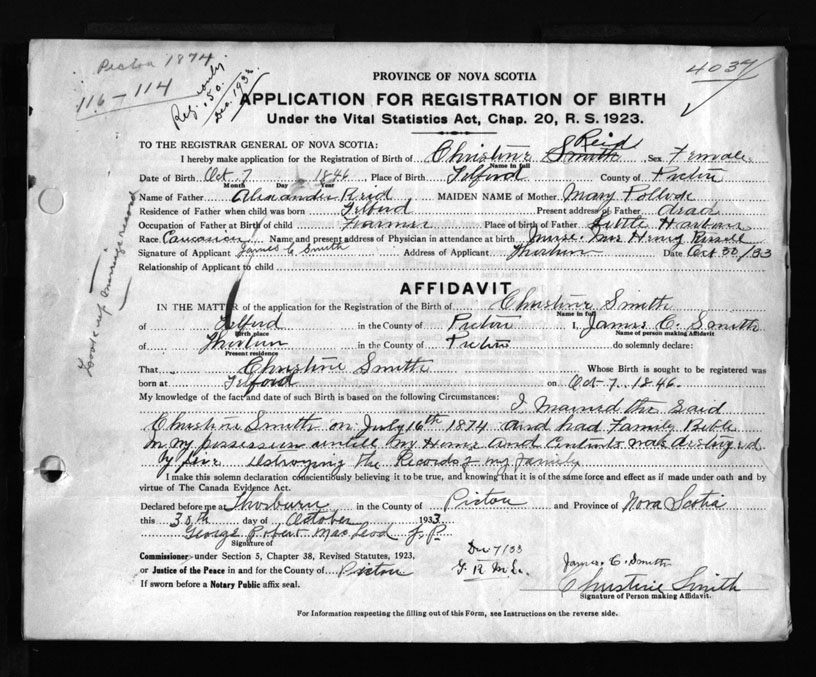 Pictou 1874
116-114
Reg. only
.50.
Dec. 1933
4034
PROVINCE OF NOVA SCOTIA
APPLICATION FOR REGISTRATION OF BIRTH
Under the Vital Statistics Act, Chap. 20, R. S. 1923.
TO THE REGISTRAR GENERAL OF NOVA SCOTIA:
Reid
I hereby make application for the Registration of Birth of Christine Smith Sex Female
Name in full
Date of Birth Oct 7 1846 Place of Birth Telford County of Pictou
Month Day Year
Name of Father Alexander Reid MAIDEN NAME of Mother Mary Pollock
Residence of Father when child was born Telford Present address of Father dead
Occupation of Father at Birth of child Farmer Place of birth of Father Little Harbour
Race Caucasian Name and present address of Physician in attendance at birth Nurse. Mrs Henry Russell
Signature of Applicant James C Smith Address of Applicant Thorburn Date Oct 30/33
Relationship of Applicant to child
Look up marriage record
AFFIDAVIT
IN THE MATTER of the application for the Registration of the Birth of Christine Smith
Name in full
of Telford in the County of Pictou I, James C. Smith
Birth place Name of person making Affidavit
of Thorburn in the County of Pictou do solemnly declare:
Present residence
That Christine Smith Whose Birth is sought to be registered was
born at Telford on Oct 7. 1846.
My knowledge of the fact and date of such Birth is based on the following Circumstances: I Maried the Said
Christine Smith on July 16th 1874 and had Family Bible
in my possession untill my Home and Contents was destroyed
by fire Destroying the Records of my family
I make this solemn declaration conscientiously believing it to be true, and knowing that it is of the same force and effect as if made under oath and by
virtue of The Canada Evidence Act.
Declared before me at Thorburn in the County of Pictou and Province of Nova Scotia
this 30th day of October 1933
George Robert MacLeod J.P.
Signature of
Commissioner under Section 5, Chapter 38, Revised Statutes, 1923,
or Justice of the Peace in and for the County of Pictou
If sworn before a Notary Public affix seal.
Dec 7/33
G. R. McL.
James. C. Smith
Christine Smith
Signature of Person making Affidavit.
For Information respecting the filling out of this Form, see Instructions on the reverse side.